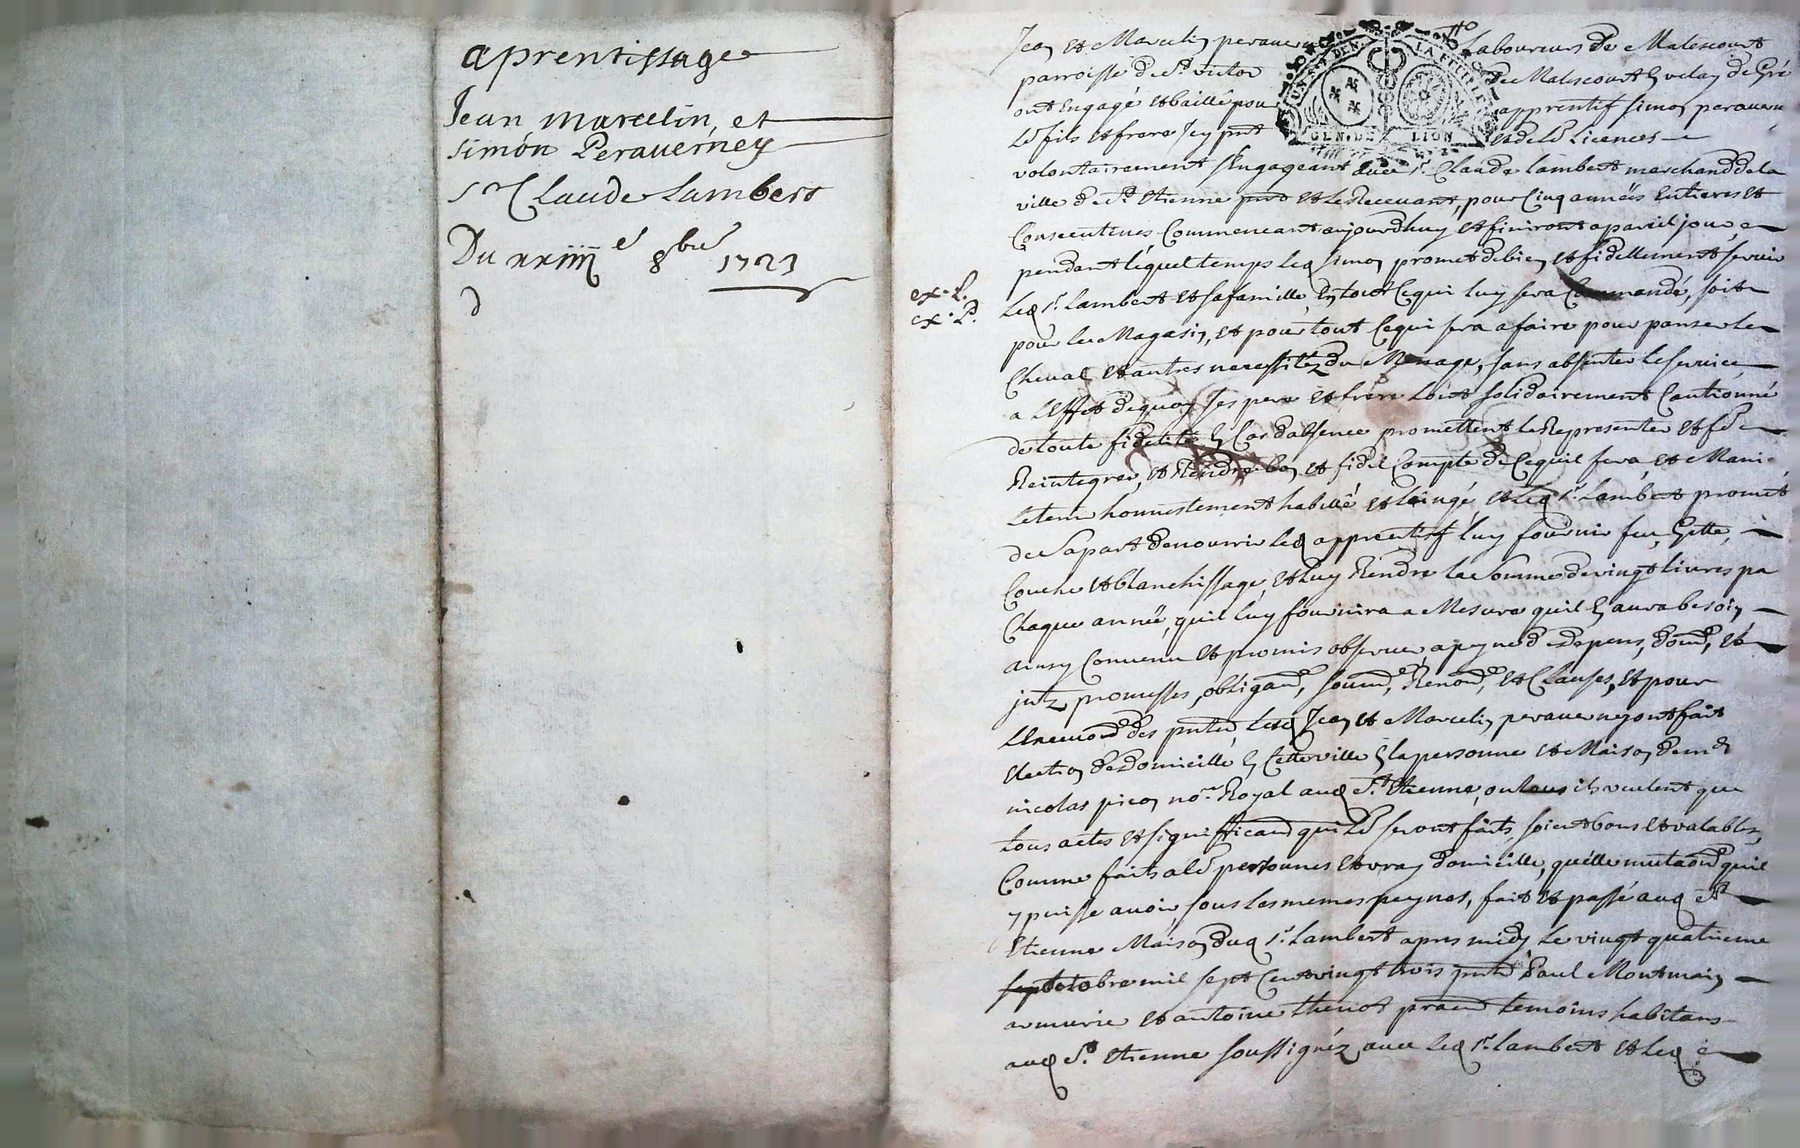 aprentissage
Jean Marcelin, et
simón Perauerney
Sr Claude Lambert
Du xxiiii e 8bre 1723
d
ex. L.
ex. P.
GEN. DE LION
Jean et Marcelin perauerney Laboureurs de Malescourt
parroisse de St victor de Malescourt en velay de Gré
ont Engagé et baillé pour apprentif simon perauerney
Ld fils et frere Icy pnt et de Ld Licences
volontairement s'Engageant auec sr Claude Lambert marchand de la
ville de St Etienne pnt et Le Receuant, pour Cinq années Entieres et
Consecutiues Commencant aujourdhuy et finiront a pareil jour,
pendant lequel temps led simon promet de bien et fidellement seruir
Led sr Lambert et sa famille, En tout Ce qui luy sera Commandé, soit
pour le Magasin, et pour tout Ce qui sera a faire pour panser le
Cheual et autres necessitez du Menage, sans absenter le seruice
a L'Effet de quoy ses pere et frere L'ont solidairement Cautionné
de toute fidelité En Cas d'absence promettent le Representer et
Reintegrer, et Rendre bon et fidel Compte de Ce quil fera, et
Le tenir honnestement habillé et laingé, et Led sr Lambert promet
de Sa part de nourrir Led apprentif luy fournir feu, Gitte,
Couche et blanchissage, et luy Rendre la Somme de vingt liures pa
Chaque année, quil luy fournira a Mesure quil En aura besoin,
ainsy Conuenu et promis obseruer a peyne de depens, dom, et
jntz promesses, obligaon, soumon, Renon, et Clauses, et pour
des pntes Lesd Jean et Marcelin perauerney ont fait
Election de Domicille En Cette ville En la personne et Maison de
nicolas picon nore Royal aud St Etienne, ou ils veulent que
tous actes et significaons qui Ld seront faits soient bons et valables,
Comme faits a Ld personnes et vray domicille, quelle mutaon quil
y puisse auoir sous les memes peynes, fait et passé aud St
Etienne Maison dud sr Lambert apres midy Le vingt quatrieme
octobre mil sept Cent vingt trois pnts Paul Montmain
armurier et antoine thenot temoins habitans
aud St Etienne soussignéz auec Led sr Lambert et Led